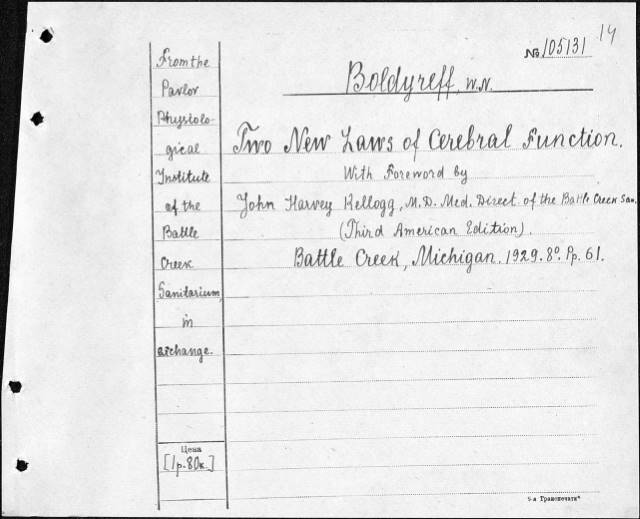 14
№ 105131
Boldyreff, W.N.
Two New Laws of Cerebral Function.
With Foreword by
John Harvey Kellogg, M.D. Med. Direct. of the Battle Creek San.
(Third American Edition).
Battle Creek, Michigan. 1929. 8º. Pp. 61.
From the
Pavlov
Physiolo-
gical
Institute
of the
Battle
Creek
Sanitarium,
in
exchange.
Цена
[1р.80к.]
5-я Транспечати"